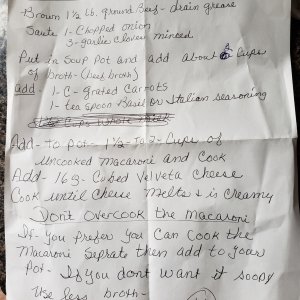 Brown 1½ Lb. ground Beef - drain grease
Saute 1 - Chopped onion
3 - garlic cloves minced
Put in Soup Pot and add about 6 Cups
of broth - (beef broth)
add - 1 - C - Grated Carrots
1 - tea spoon Basil or Italian seasoning
Cups whole milk
Add - to pot - 1½ - to 2 - Cups of
Uncooked Macaroni and Cook
Add - 16 oz - Cubed Velveta Cheese
Cook until Cheese Melts & is Creamy
Don't overcook the Macaroni
If - you Prefer you Can Cook the
Macaroni Seprate then add to your
Pot - If you dont want it soopy
Use less broth -